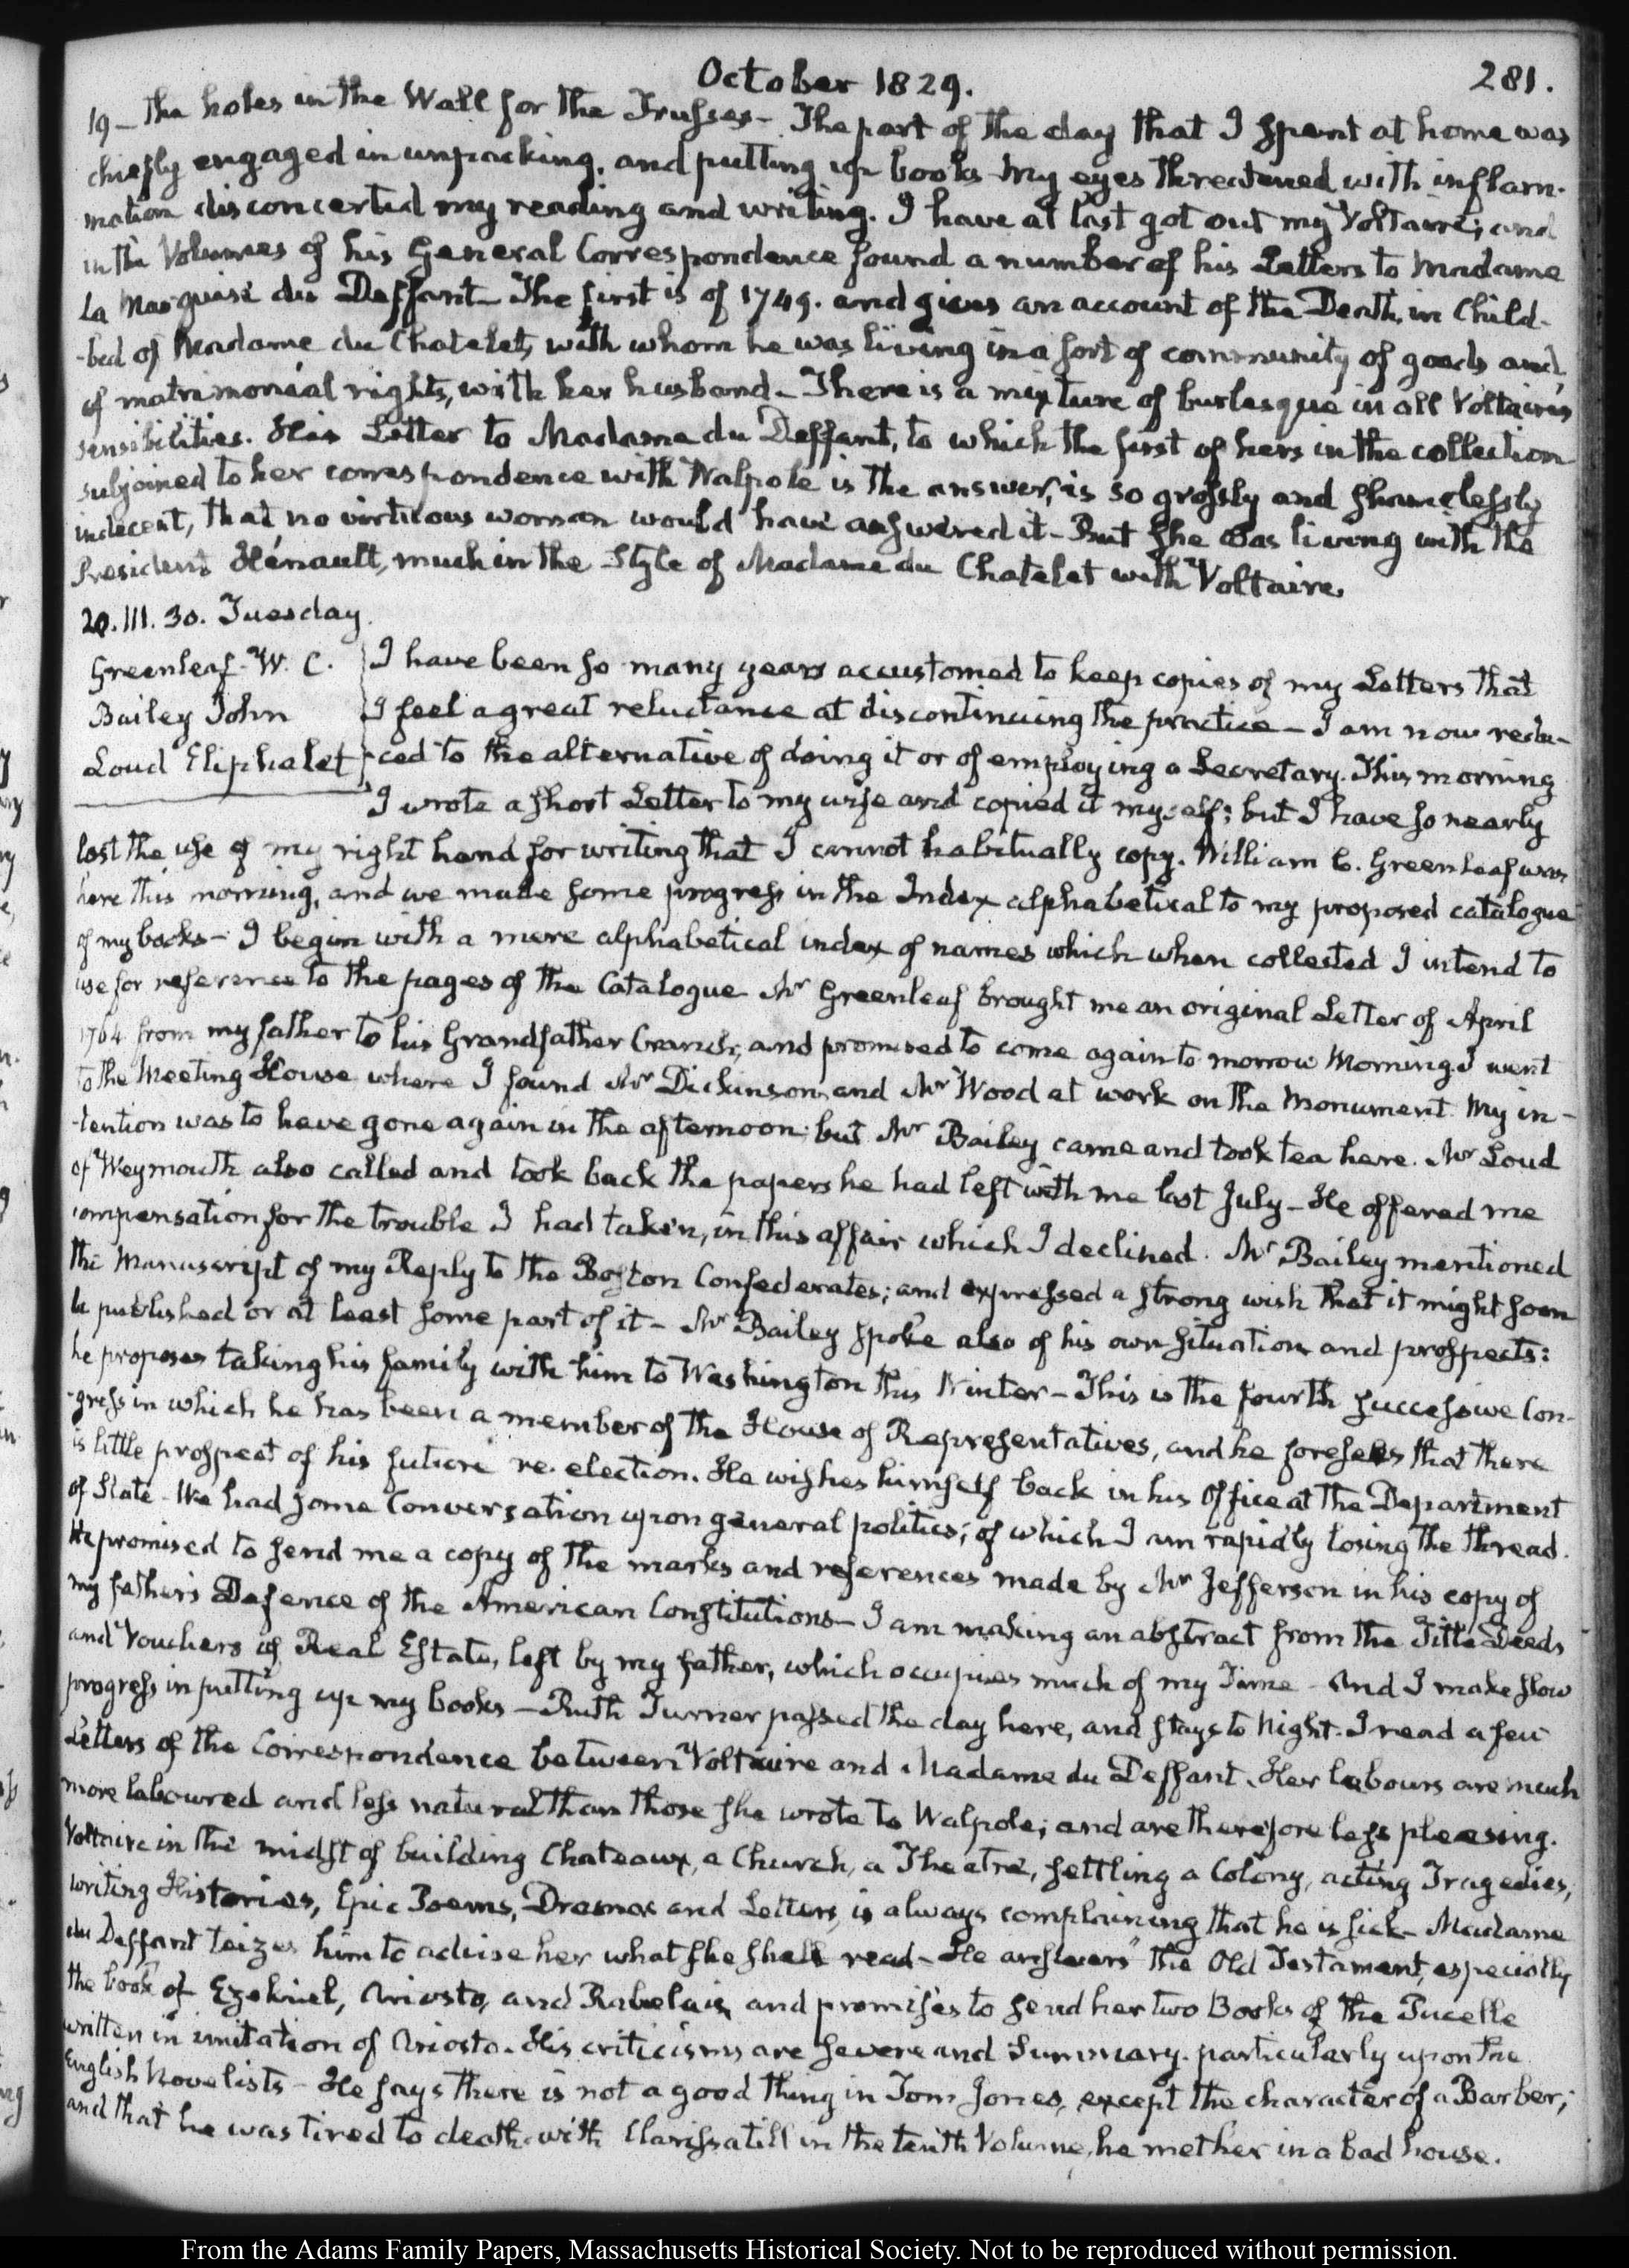 October 1829.
281.
19 – the holes in the Wall for the Trusses – The part of the day that I spent at home was
chiefly engaged in unpacking, and putting up books – My eyes threatened with inflam-
mation disconcerted my reading and writing. I have at last got out my Voltaire; and
in the Volumes of his General Correspondence found a number of his Letters to Madame
La Marquise du Deffant – The first is of 1749. and gives an account of the Death, in Child-
-bed of Madame du Chatelet, with whom he was living in a sort of community of goods and,
of matrimonial rights, with her husband – There is a mixture of burlesque in all Voltaire's
sensibilities. His Letter to Madame du Deffant, to which the first of hers in the collection
subjoined to her correspondence with Walpole is the answer, is so grossly and shamelessly
indecent, that no virtuous woman would have answered it – But she was living with the
President Hénault, much in the style of Madame du Chatelet with Voltaire.
20. III. 30. Tuesday.
Greenleaf W. C.
Bailey John
Loud Eliphalet
I have been so many years accustomed to keep copies of my Letters that
I feel a great reluctance at discontinuing the practice – I am now redu-
-ced to the alternative of doing it or of employing a Secretary. This morning
I wrote a short Letter to my wife and copied it myself; but I have so nearly
lost the use of my right hand for writing that I cannot habitually copy. William C. Greenleaf was
here this morning, and we made some progress in the Index alphabetical to my proposed catalogue
of my books – I begin with a mere alphabetical index of names which when collected I intend to
use for reference to the pages of the Catalogue Mr Greenleaf brought me an original Letter of April
1764 from my father to his Grandfather Cranch; and promised to come again to morrow Morning. I went
to the Meeting House where I found Mr Dickinson, and Mr Wood at work on the Monument. My in-
-tention was to have gone again in the afternoon; but Mr Bailey came and took tea here. Mr Loud
of Weymouth also called and took back the papers he had left with me last July – He offered me
compensation for the trouble I had taken, in this affair which I declined. Mr Bailey mentioned
the Manuscript of my Reply to the Boston Confederates; and expressed a strong wish that it might soon
be published or at least some part of it – Mr Bailey spoke also of his own situation and prospects:
he proposes taking his family with him to Washington this Winter – This is the fourth successive Con-
-gress in which he has been a member of the House of Representatives, and he foresees that there
is little prospect of his future re-election. He wishes himself back in his Office at the Department
of State – We had some Conversation upon general politics; of which I am rapidly losing the thread.
He promised to send me a copy of the marks and references made by Mr Jefferson in his copy of
my father's Defence of the American Constitutions – I am making an abstract from the Title Deeds
and Vouchers of Real Estate, left by my father, which occupies much of my Time – And I make slow
progress in putting up my books – Ruth Turner passed the day here, and stays to Night. I read a few
Letters of the Correspondence between Voltaire and Madame du Deffant. Her labours are much
more laboured and less natural than those she wrote to Walpole; and are therefore less pleasing.
Voltaire in the midst of building Chateaux, a Church, a Theatre, settling a Colony, acting Tragedies,
writing Histories, Epic Poems, Dramas and Letters, is always complaining that he is sick – Madame
du Deffant teizes him to advise her what she shall read – He answers "the Old Testament, especially
the book of Ezekiel, Ariosto, and Rabelais, and promises to send her two Books of the Pucelle
written in imitation of Ariosto. His criticisms are severe and summary. particularly upon the
English Novelists – He says there is not a good thing in Tom Jones, except the character of a Barber;
and that he was tired to death with Clarissa till in the tenth Volume, he met her in a bad house.
From the Adams Family Papers, Massachusetts Historical Society. Not to be reproduced without permission.